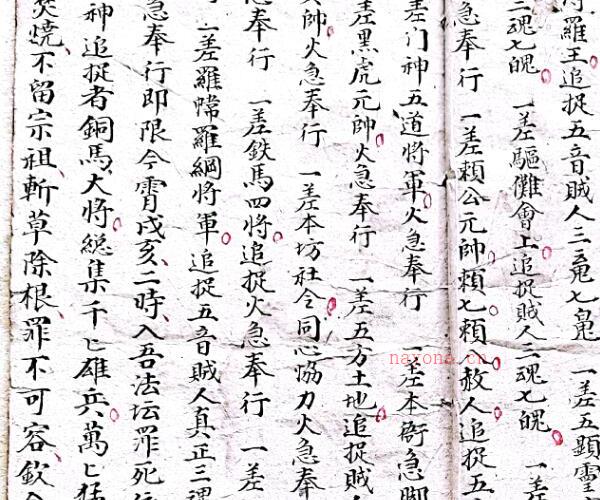 羅王追捉五音賊人三魂七魄　一差五顯靈
三魂七魄　一差驅儺會上追捉賊人三魂七魄　一差
急奉行　一差賴公元帥賴七賴八赦人追捉五
差门神五道将軍火急奉行　一差本衙急脚
差黑虎元帥火急奉行　一差五方土地追捉賊
帥火急奉行　一差本坊社令同心恊力火急奉
急奉行　一差鉄馬四将追捉火急奉行　一差
一差羅幃羅綱将軍追捉五音賊人真正三魂
急奉行即限今霄戌亥二時入吾法坛罪死
神追捉者銅馬大将総集千匕雄兵萬匕猛
焚燒不留宗祖斬草除根罪不可容欽
nayona.cn